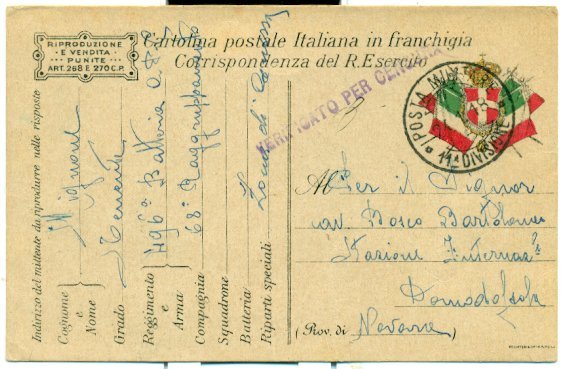 RIPRODUZIONE
E VENDITA
PUNITE
ART. 268 E 270 C.P.
Cartolina postale Italiana in franchigia
Corrispondenza del R. Esercito
VERIFICATO PER CENSURA
POSTA MILITARE
11ª DIVISIONE
Al Per il Signor
Cav. Bosco Bartolomeo
Stazione Internaz
Domodossola
(Prov. di Novara)
Indirizzo del mittente da riprodurre nelle risposte
Cognome e Nome
Grado Tenente
Reggimento e Arma 496ª Batteria
Compagnia 68º Raggruppamento
Squadrone
Batteria
Riparti speciali Zona di